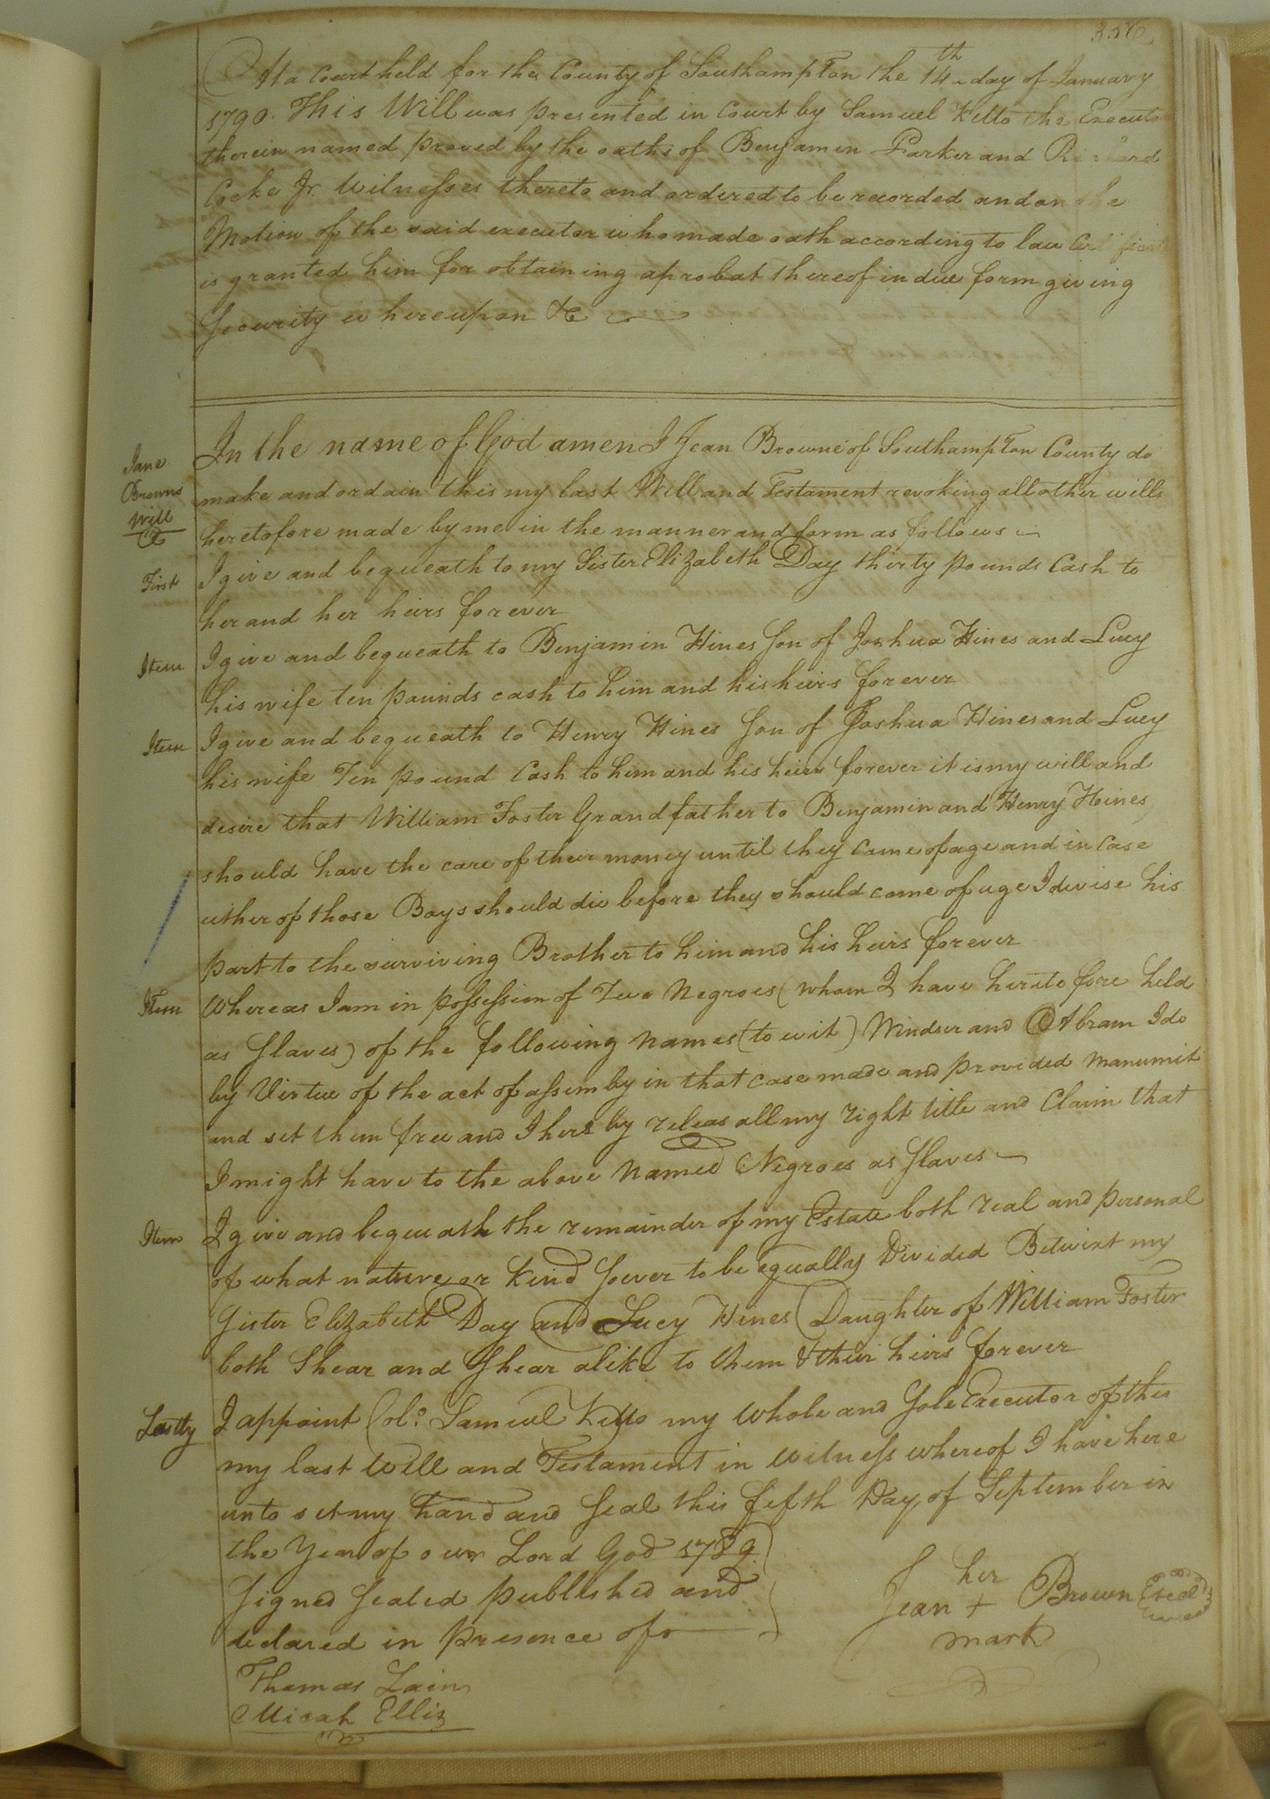 At a Court held for the County of Southampton the 14th day of January
1790. This Will was presented in Court by Samuel Kello the Executo
therein named proved by the oaths of Benjamin Parker and Richard
Cocke Jr. Witnesses thereto and ordered to be recorded and on the
Motion of the said executor who made oath according to law Certificate
is granted him for obtaining a probat thereof in due form giving
Security whereupon &c
Jane
Browns
Will
&
In the name of God amen I Jean Browne of Southampton County do
make and ordain this my last Will and Testament revoking all other wills
heretofore made by me in the manner and form as follows
First I give and bequeath to my Sister Elizabeth Day thirty pounds Cash to
her and her heirs forever
Item I give and bequeath to Benjamin Hines Son of Joshua Hines and Lucy
his wife ten pounds cash to him and his heirs forever
Item I give and bequeath to Henry Hines Son of Joshua Hines and Lucy
his wife Ten pound Cash to him and his heirs forever it is my will and
desire that William Foster Grandfather to Benjamin and Henry Hines
should have the care of their money until they come of age and in case
either of those Boys should die before they should come of age I devise his
part to the surviving Brother to him and his heirs forever
Item Whereas I am in possession of Two Negroes (whom I have heretofore held
as Slaves) of the following names (to wit) Windsor and Abram I do
by Virtue of the act of assemby in that case made and provided manumit
and set them free and I hereby releas all my right title and Claim that
I might have to the above named Negroes as Slaves
Item I give and bequeath the remainder of my Estate both real and personal
of what nature or kind soever to be equally Divided Betwixt my
Sister Elizabeth Day and Lucy Hines Daughter of William Foster
both Shear and Shear alike to them & their heirs forever
Lastly I appoint Colo. Samuel Kello my whole and Sole Executor of this
my last Will and Testament in witness whereof I have here
unto set my hand and Seal this fifth Day of September in
the Year of our Lord God 1789
Signed Sealed published and
declared in presence of
her
Jean + Brown (seal)
mark
Thomas Lain
Micah Ellis